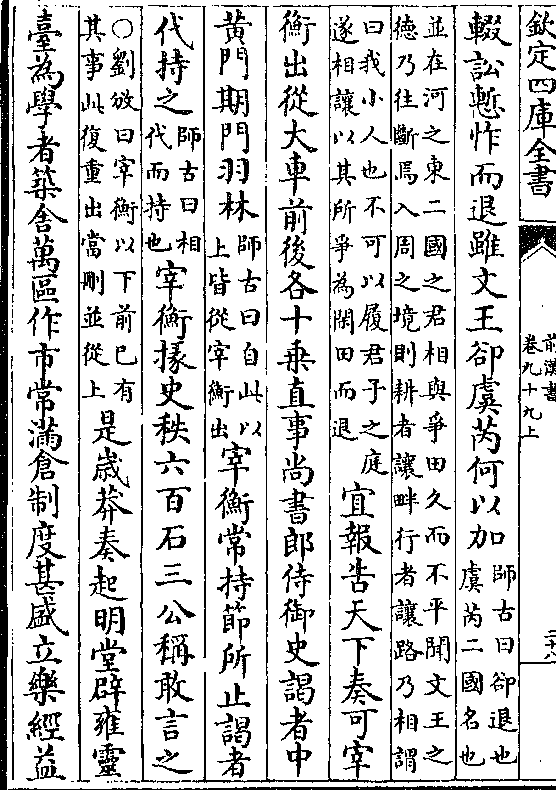 欽定四庫全書
前漢書
卷九十九上
三十八
輟訟慙怍而退雖文王卻虞芮何以加
師古曰卻退也
虞芮二國名也
並在河之東二國之君相與爭田久而不平聞文王之
德乃往斷焉入周之境則耕者讓畔行者讓路乃相謂
曰我小人也不可以履君子之庭
遂相讓以其所爭為閑田而退
宜報告天下奏可宰
衡出從大車前後各十乗直事尚書郎侍御史謁者中
黄門期門羽林
師古曰自此以
上皆從宰衡出
宰衡常持節所止謁者
代持之
師古曰相
代而持也
宰衡掾史秩六百石三公稱敢言之
○劉攽曰宰衡以下前已有
其事此復重出當刪並從上
是歲莽奏起明堂辟雍靈
臺為學者築舍萬區作市常滿倉制度甚盛立樂經益